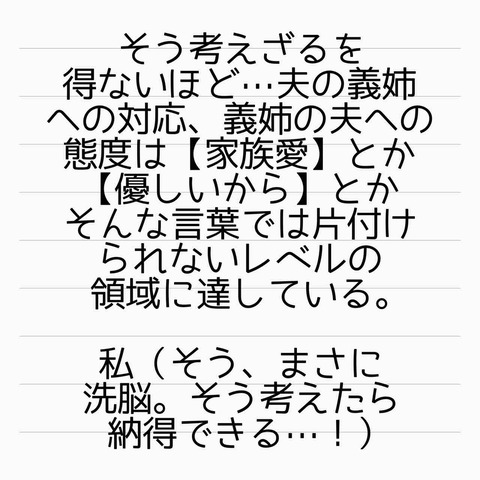 そう考えざるを
得ないほど…夫の義姉
への対応、義姉の夫への
態度は【家族愛】とか
【優しいから】とか
そんな言葉では片付け
られないレベルの
領域に達している。
私（そう、まさに
洗脳。そう考えたら
納得できる…！）